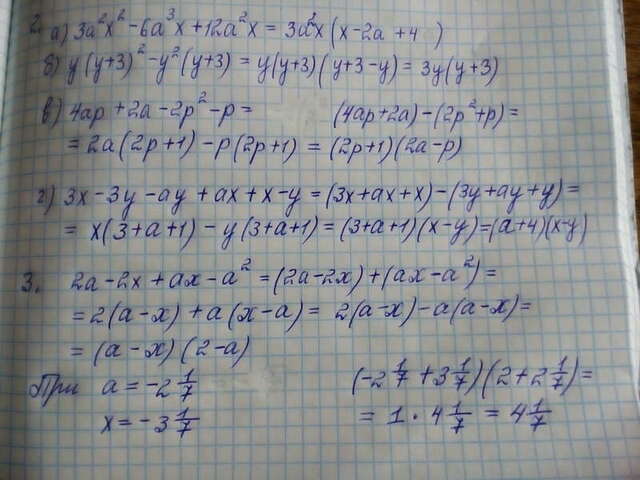 2. а) 3a²x² - 6a³x + 12a²x = 3a²x (x - 2a + 4 )
б) y(y+3)² - y²(y+3) = y(y+3)(y+3-y) = 3y(y+3)
в) 4ap + 2a - 2p² - p = (4ap+2a) - (2p²+p) =
= 2a(2p+1) - p(2p+1) = (2p+1)(2a-p)
г) 3x - 3y - ay + ax + x - y = (3x+ax+x) - (3y+ay+y) =
= x(3+a+1) - y(3+a+1) = (3+a+1)(x-y) = (a+4)(x-y)
3. 2a - 2x + ax - a² = (2a-2x) + (ax-a²) =
= 2(a-x) + a(x-a) = 2(a-x) - a(a-x) =
= (a-x)(2-a)
При a = -2 1/7 (-2 1/7 + 3 1/7)(2 + 2 1/7) =
x = -3 1/7 = 1 · 4 1/7 = 4 1/7